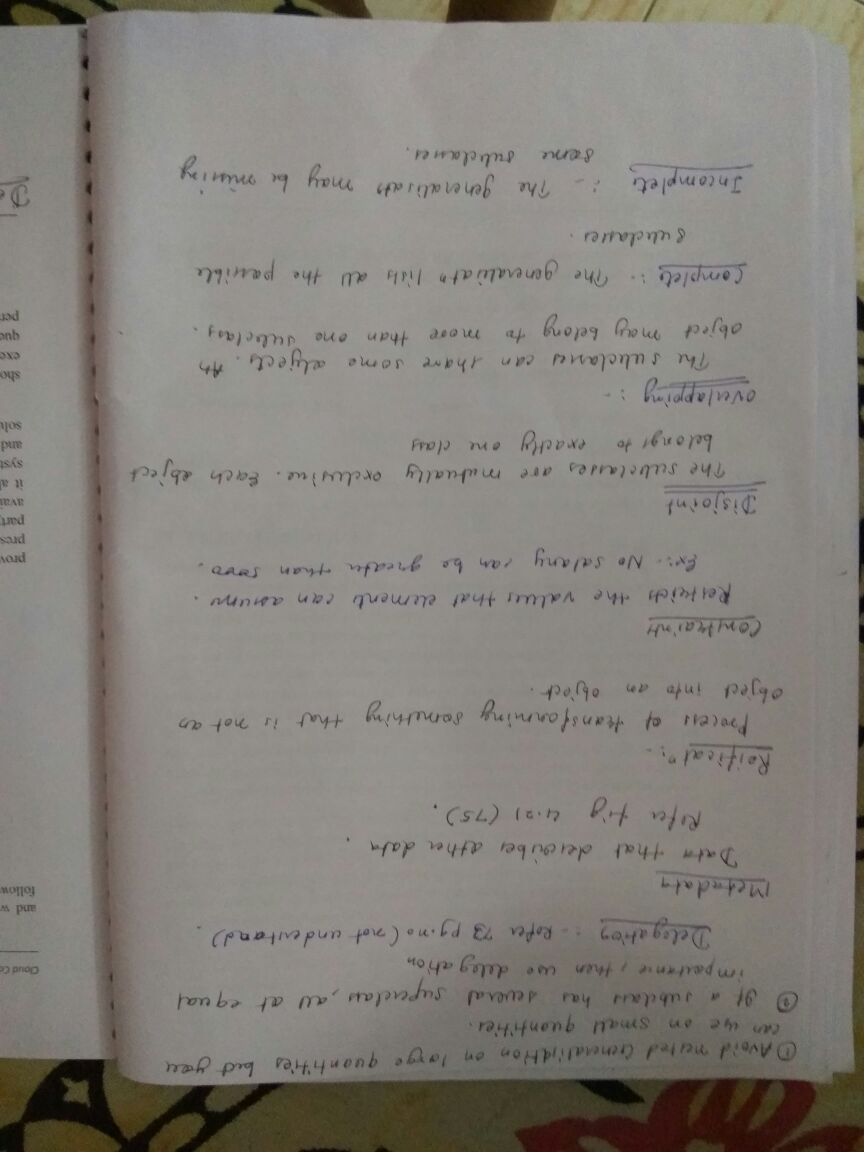 ① Avoid nested Generalization on large quantities but you
can use on small quantities.
② If a subclass has several superclass, all at equal
importance, then use delegation
Delegation :- Refer 73 pg.no (not understand).
Metadata
Data that describes other data.
Refer fig 4.21 (75).
Reificatⁿ :-
Process of transforming something that is not an
object into an object.
Constraints
Restricts the values that elements can assume.
Ex:- No salary can be greater than
Disjoint
The subclasses are mutually exclusive. Each object
belongs to exactly one class
Overlapping :-
The subclasses can share some objects. An
object may belong to more than one subclass.
Complete :- The generalizatⁿ lists all the possible
subclasses.
Incomplete :- The generalisatⁿ may be missing
some subclasses.
Cloud Co
and w
follow
prov
pres
party
avai
it al
syst
and
solu
sho
exc
que
per
De